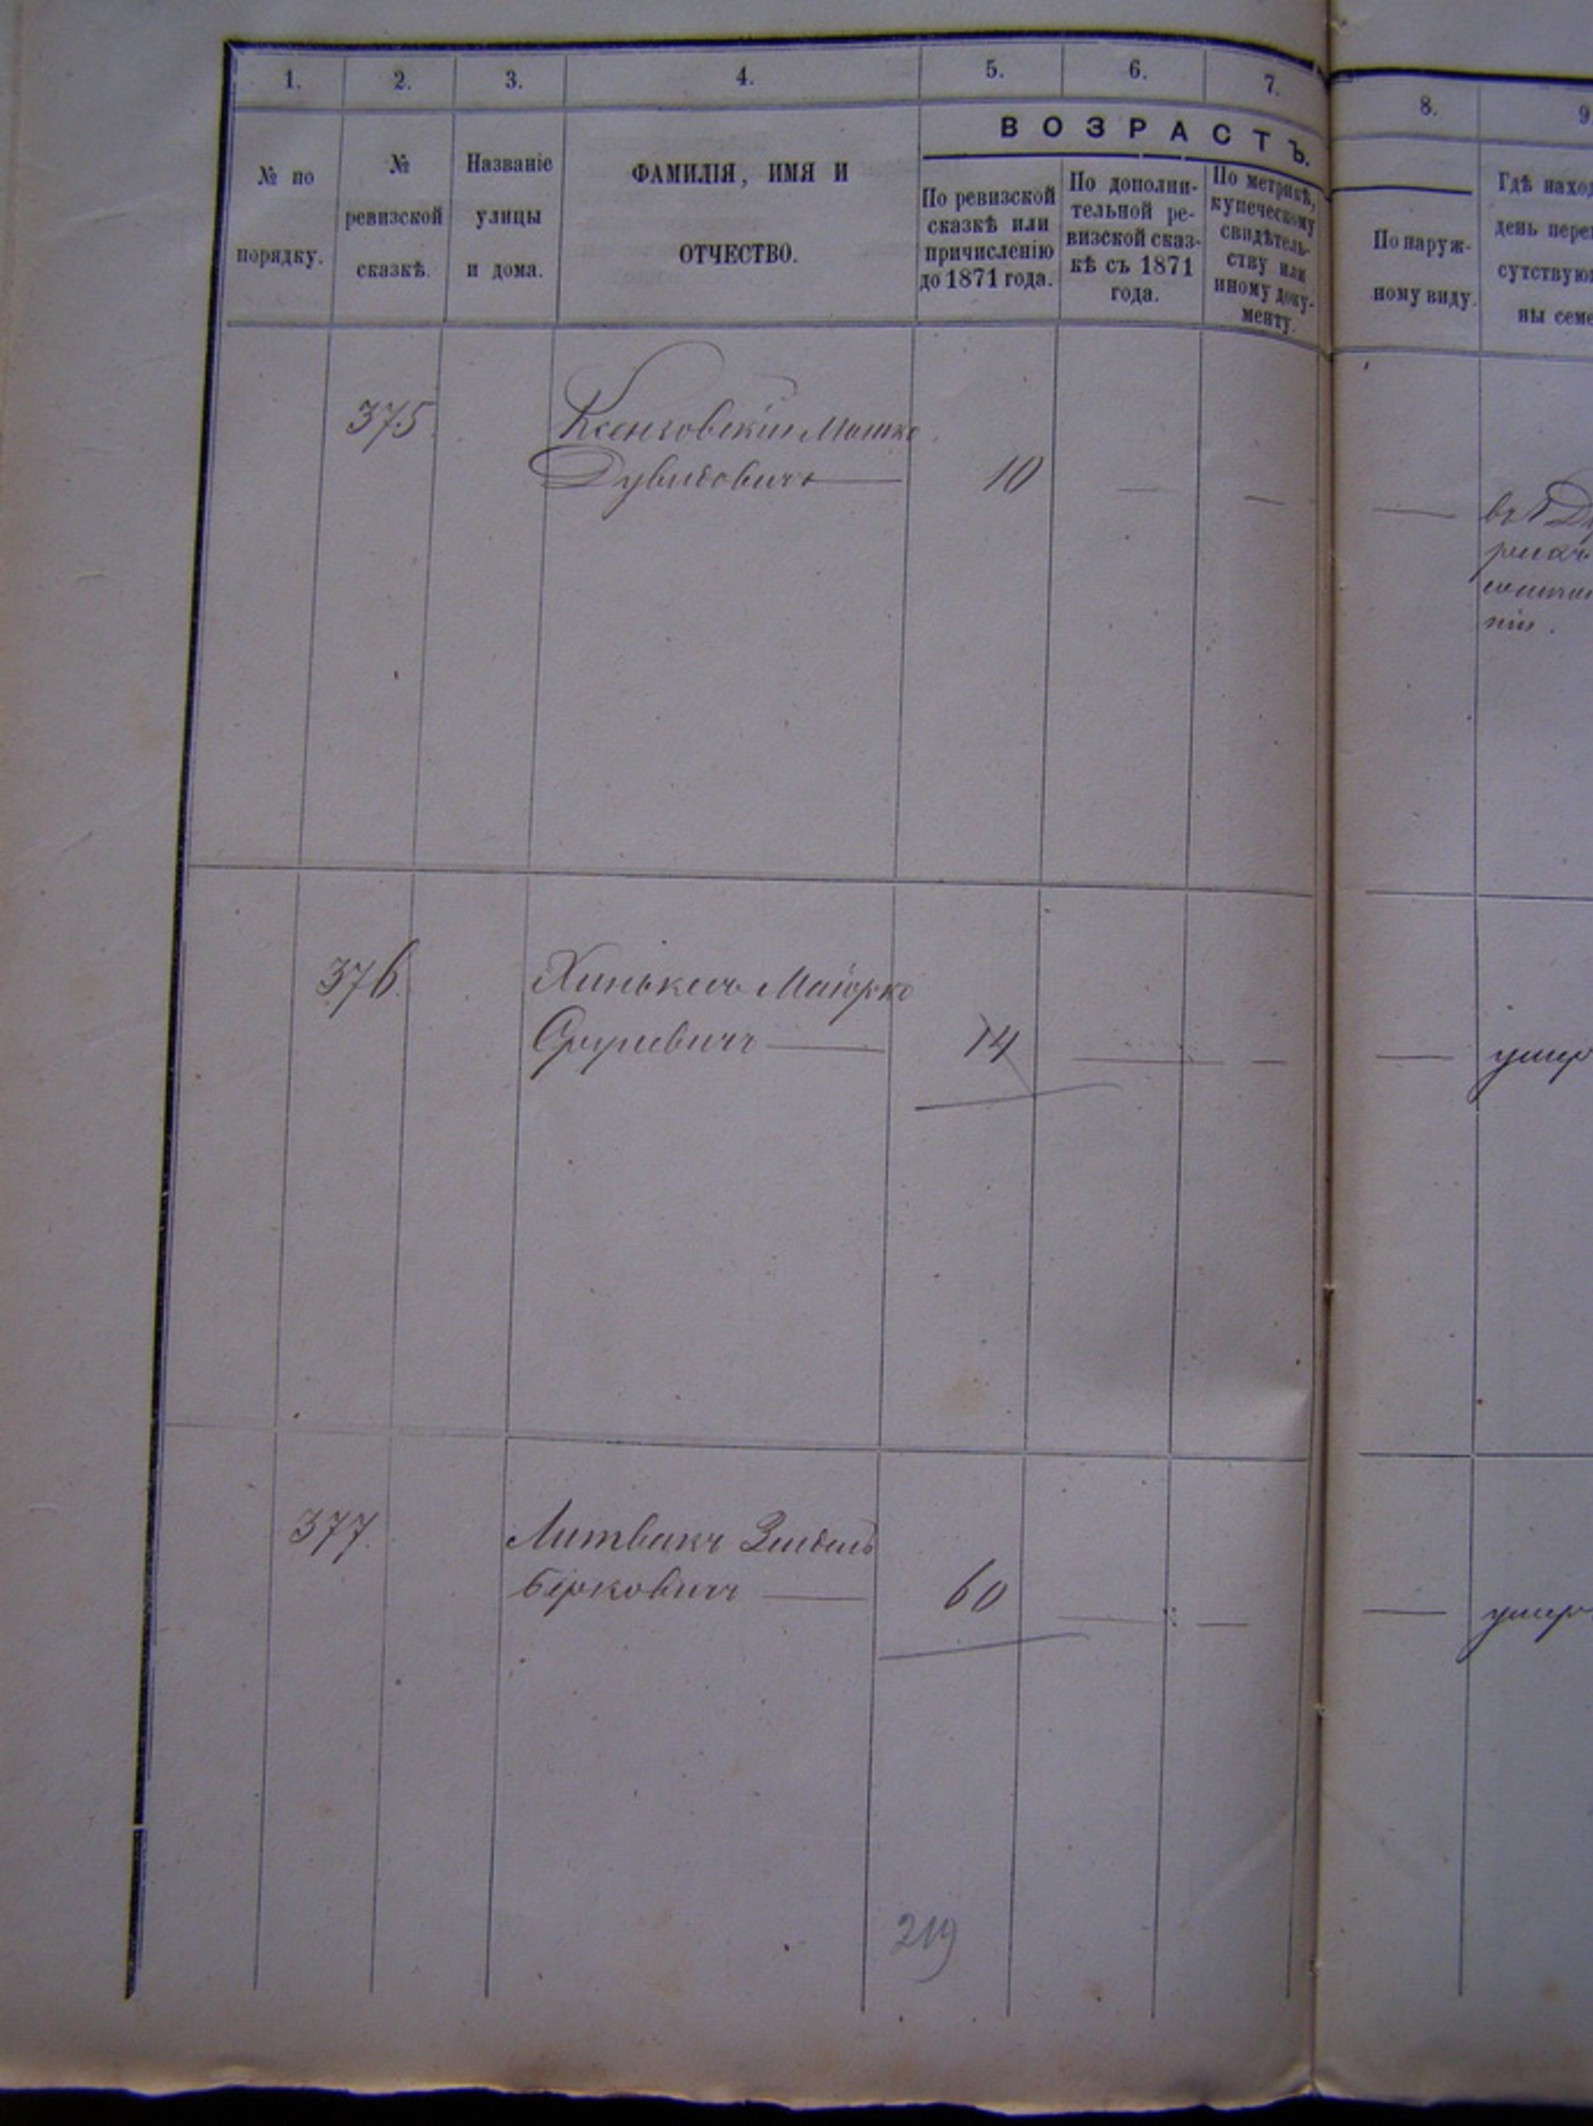 1. 2. 3. 4. 5. 6. 7. 8. 9
ВОЗРАСТЪ.
№ по
порядку.
№
ревизской
сказкѣ.
Названіе
улицы
и дома.
ФАМИЛІЯ, ИМЯ И
ОТЧЕСТВО.
По ревизской
сказкѣ или
причисленію
до 1871 года.
По дополни-
тельной ре-
визской сказ-
кѣ съ 1871
года.
По метрикѣ,
купеческому
свидѣтель-
ству или
иному доку-
менту.
По наруж-
ному виду.
Гдѣ наход
день пере
сутствую
ны семе
375. Мошко
Дувидовичъ — 10 — — —
376. Маіорко
14 — — — умер
377. Литвакъ Зейдель
Берковичъ — 60 — — — умер
219